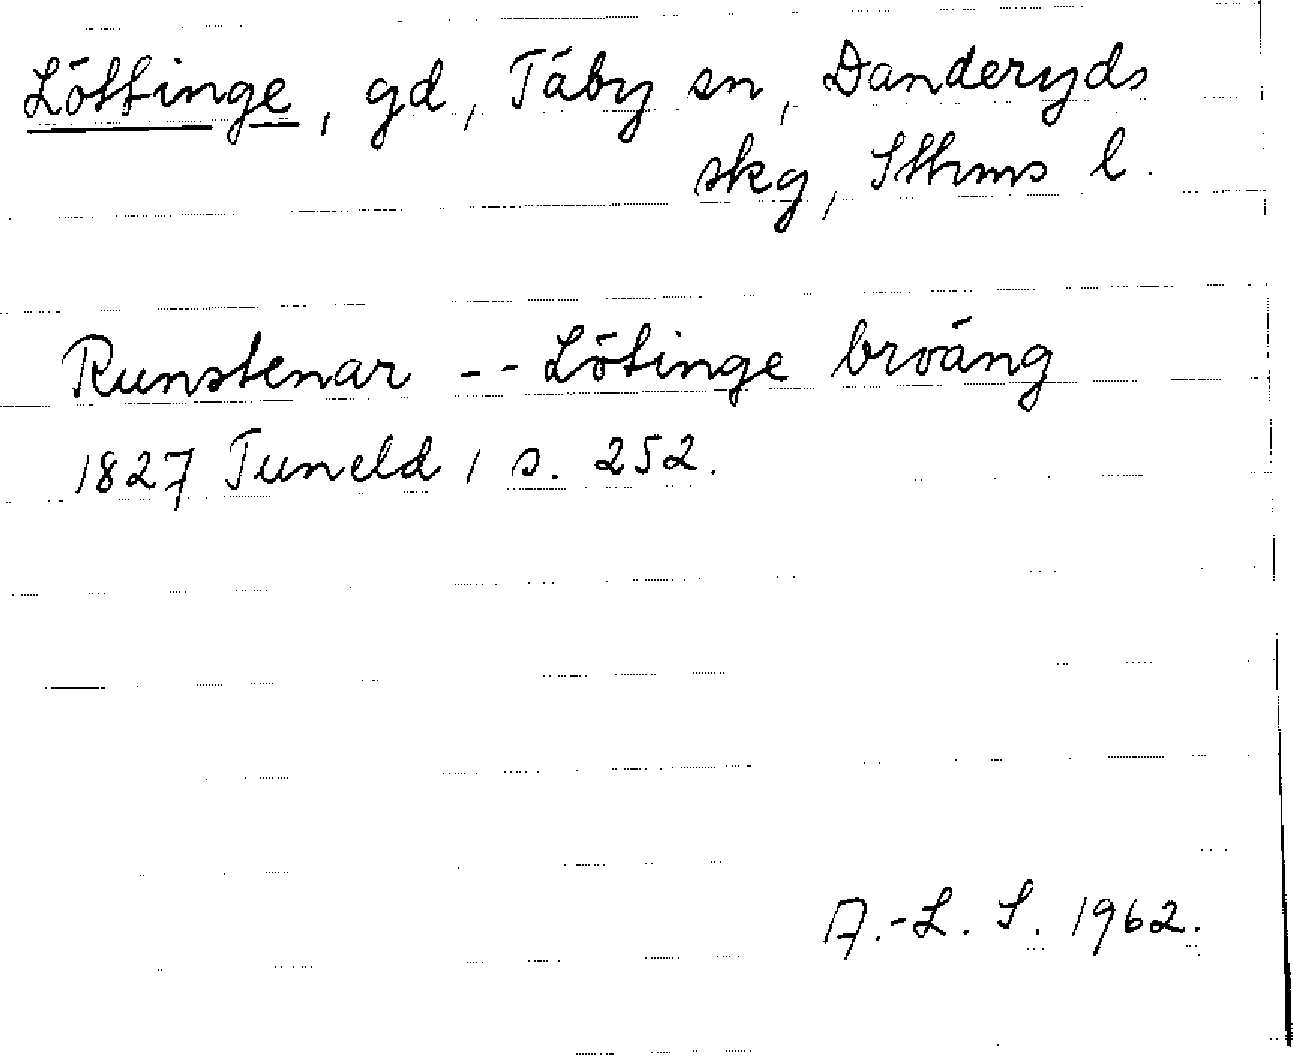 Löttinge, gd, Täby sn, Danderyds
skg, Sthms l.
Runstenar -- Lötinge broäng
1827 Tuneld 1 s. 252.
A.-L. S. 1962.